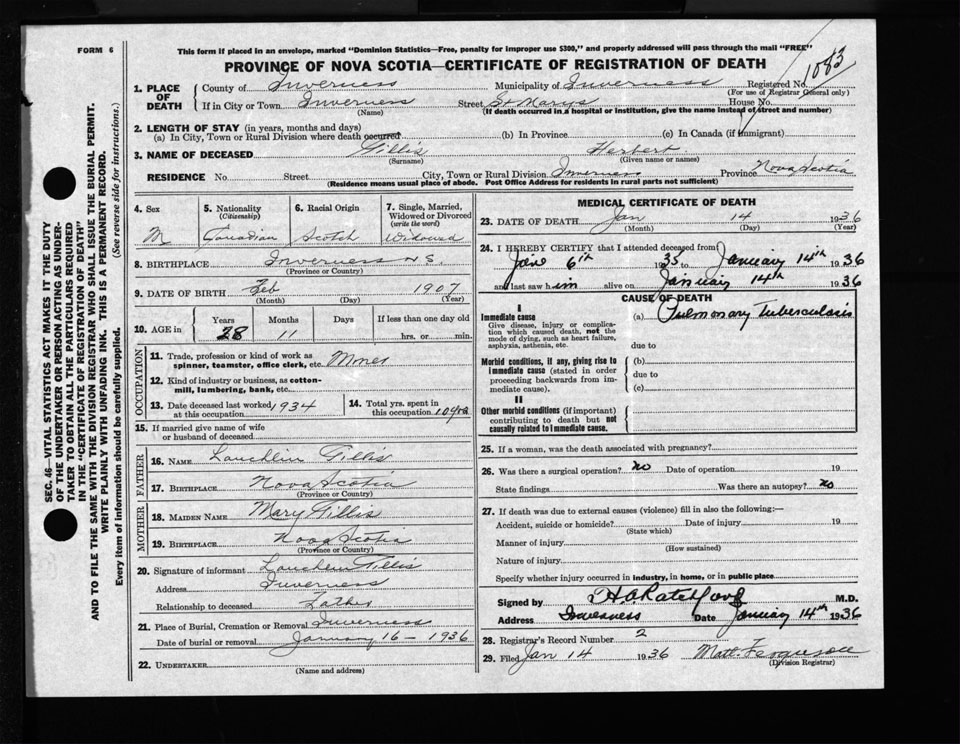 FORM 6
This form if placed in an envelope, marked "Dominion Statistics—Free, penalty for improper use $300," and properly addressed will pass through the mail "FREE"
PROVINCE OF NOVA SCOTIA—CERTIFICATE OF REGISTRATION OF DEATH
1083
1. PLACE OF DEATH
County of Inverness Municipality of Inverness Registered No.
(For use of Registrar General only)
If in City or Town Inverness Street St Marys House No.
(Name) (If death occurred in a hospital or institution, give the name instead of street and number)
2. LENGTH OF STAY (in years, months and days)
(a) In City, Town or Rural Division where death occurred (b) In Province (c) In Canada (if immigrant)
3. NAME OF DECEASED Gillis Herbert
(Surname) (Given name or names)
RESIDENCE No. Street City, Town or Rural Division Inverness Province Nova Scotia
(Residence means usual place of abode. Post Office Address for residents in rural parts not sufficient)
SEC. 46—VITAL STATISTICS ACT MAKES IT THE DUTY
OF THE UNDERTAKER OR PERSON ACTING AS UNDER-
TAKER TO OBTAIN ALL THE PARTICULARS REQUIRED
IN THE "CERTIFICATE OF REGISTRATION OF DEATH"
AND TO FILE THE SAME WITH THE DIVISION REGISTRAR WHO SHALL ISSUE THE BURIAL PERMIT.
WRITE PLAINLY WITH UNFADING INK. THIS IS A PERMANENT RECORD.
Every item of information should be carefully supplied. (See reverse side for instructions.)
4. Sex 5. Nationality (Citizenship) 6. Racial Origin 7. Single, Married, Widowed or Divorced (write the word)
M Canadian Scotch Widowed
8. BIRTHPLACE Inverness N S.
(Province or Country)
9. DATE OF BIRTH Feb 1907
(Month) (Day) (Year)
10. AGE in Years Months Days If less than one day old
28 11 hrs. or min.
OCCUPATION
11. Trade, profession or kind of work as spinner, teamster, office clerk, etc. Miner
12. Kind of industry or business, as cotton-mill, lumbering, bank, etc.
13. Date deceased last worked at this occupation 1934 14. Total yrs. spent in this occupation 10 yrs
15. If married give name of wife or husband of deceased
FATHER
16. NAME Lauchlin Gillis
17. BIRTHPLACE Nova Scotia
(Province or Country)
MOTHER
18. MAIDEN NAME Mary Gillis
19. BIRTHPLACE Nova Scotia
(Province or Country)
20. Signature of informant Lauchlin Gillis
Address Inverness
Relationship to deceased Father
21. Place of Burial, Cremation or Removal Inverness
Date of burial or removal January 16 - 1936
22. UNDERTAKER
(Name and address)
MEDICAL CERTIFICATE OF DEATH
23. DATE OF DEATH Jan 14 1936
(Month) (Day) (Year)
24. I HEREBY CERTIFY that I attended deceased from
6th 1935 to January 14th 1936
and last saw him alive on January 14th 1936
CAUSE OF DEATH
I
Immediate cause (a) Pulmonary Tuberculosis
Give disease, injury or complica-
tion which caused death, not the
mode of dying, such as heart failure,
asphyxia, asthenia, etc. due to
Morbid conditions, if any, giving rise to (b)
immediate cause (stated in order due to
proceeding backwards from im-
mediate cause). (c)
II
Other morbid conditions (if important)
contributing to death but not
causally related to immediate cause.
25. If a woman, was the death associated with pregnancy?
26. Was there a surgical operation? no Date of operation 19
State findings Was there an autopsy? no
27. If death was due to external causes (violence) fill in also the following:—
Accident, suicide or homicide? Date of injury 19
(State which)
Manner of injury
(How sustained)
Nature of injury
Specify whether injury occurred in industry, in home, or in public place
Signed by H. O. Ratchford M.D.
Address Inverness Date January 14th 1936
28. Registrar's Record Number 2
29. Filed Jan 14 1936 Matt. Ferguson
(Division Registrar)